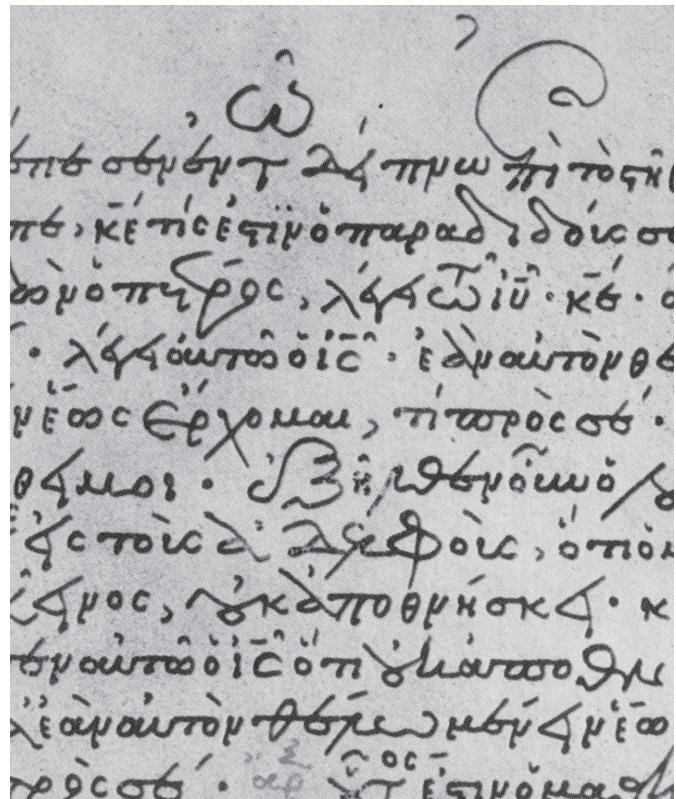 ῶ
έπεσεν ἐν τ δείπνω ἐπὶ τὸ στῆθ
πε, κ̅ε τίς ἐστιν ὁ παραδιδούς σε
ὼν ὁ πέτρος, λέγει τῶ ι̅υ̅· κ̅ε·
· λέγει αὐτῶ ὁ ι̅ς̅· ἐὰν αὐτὸν θέ
νέως ἔρχομαι, τί πρὸς σέ·
θει μοι· ἐξῆλθεν οὖν ὁ λό
εἰς τοὺς ἀδελφοὺς, ὅτι ὁ μ
εῖνος, οὐκ ἀποθνήσκει· κ
εν αὐτῶ ὁ ι̅ς̅ ὅτι οὐκ ἀποθν
λ ἐὰν αὐτὸν θέλω μένειν ἕω
πρὸς σέ· οὗτός ἐστιν ὁ μαθ